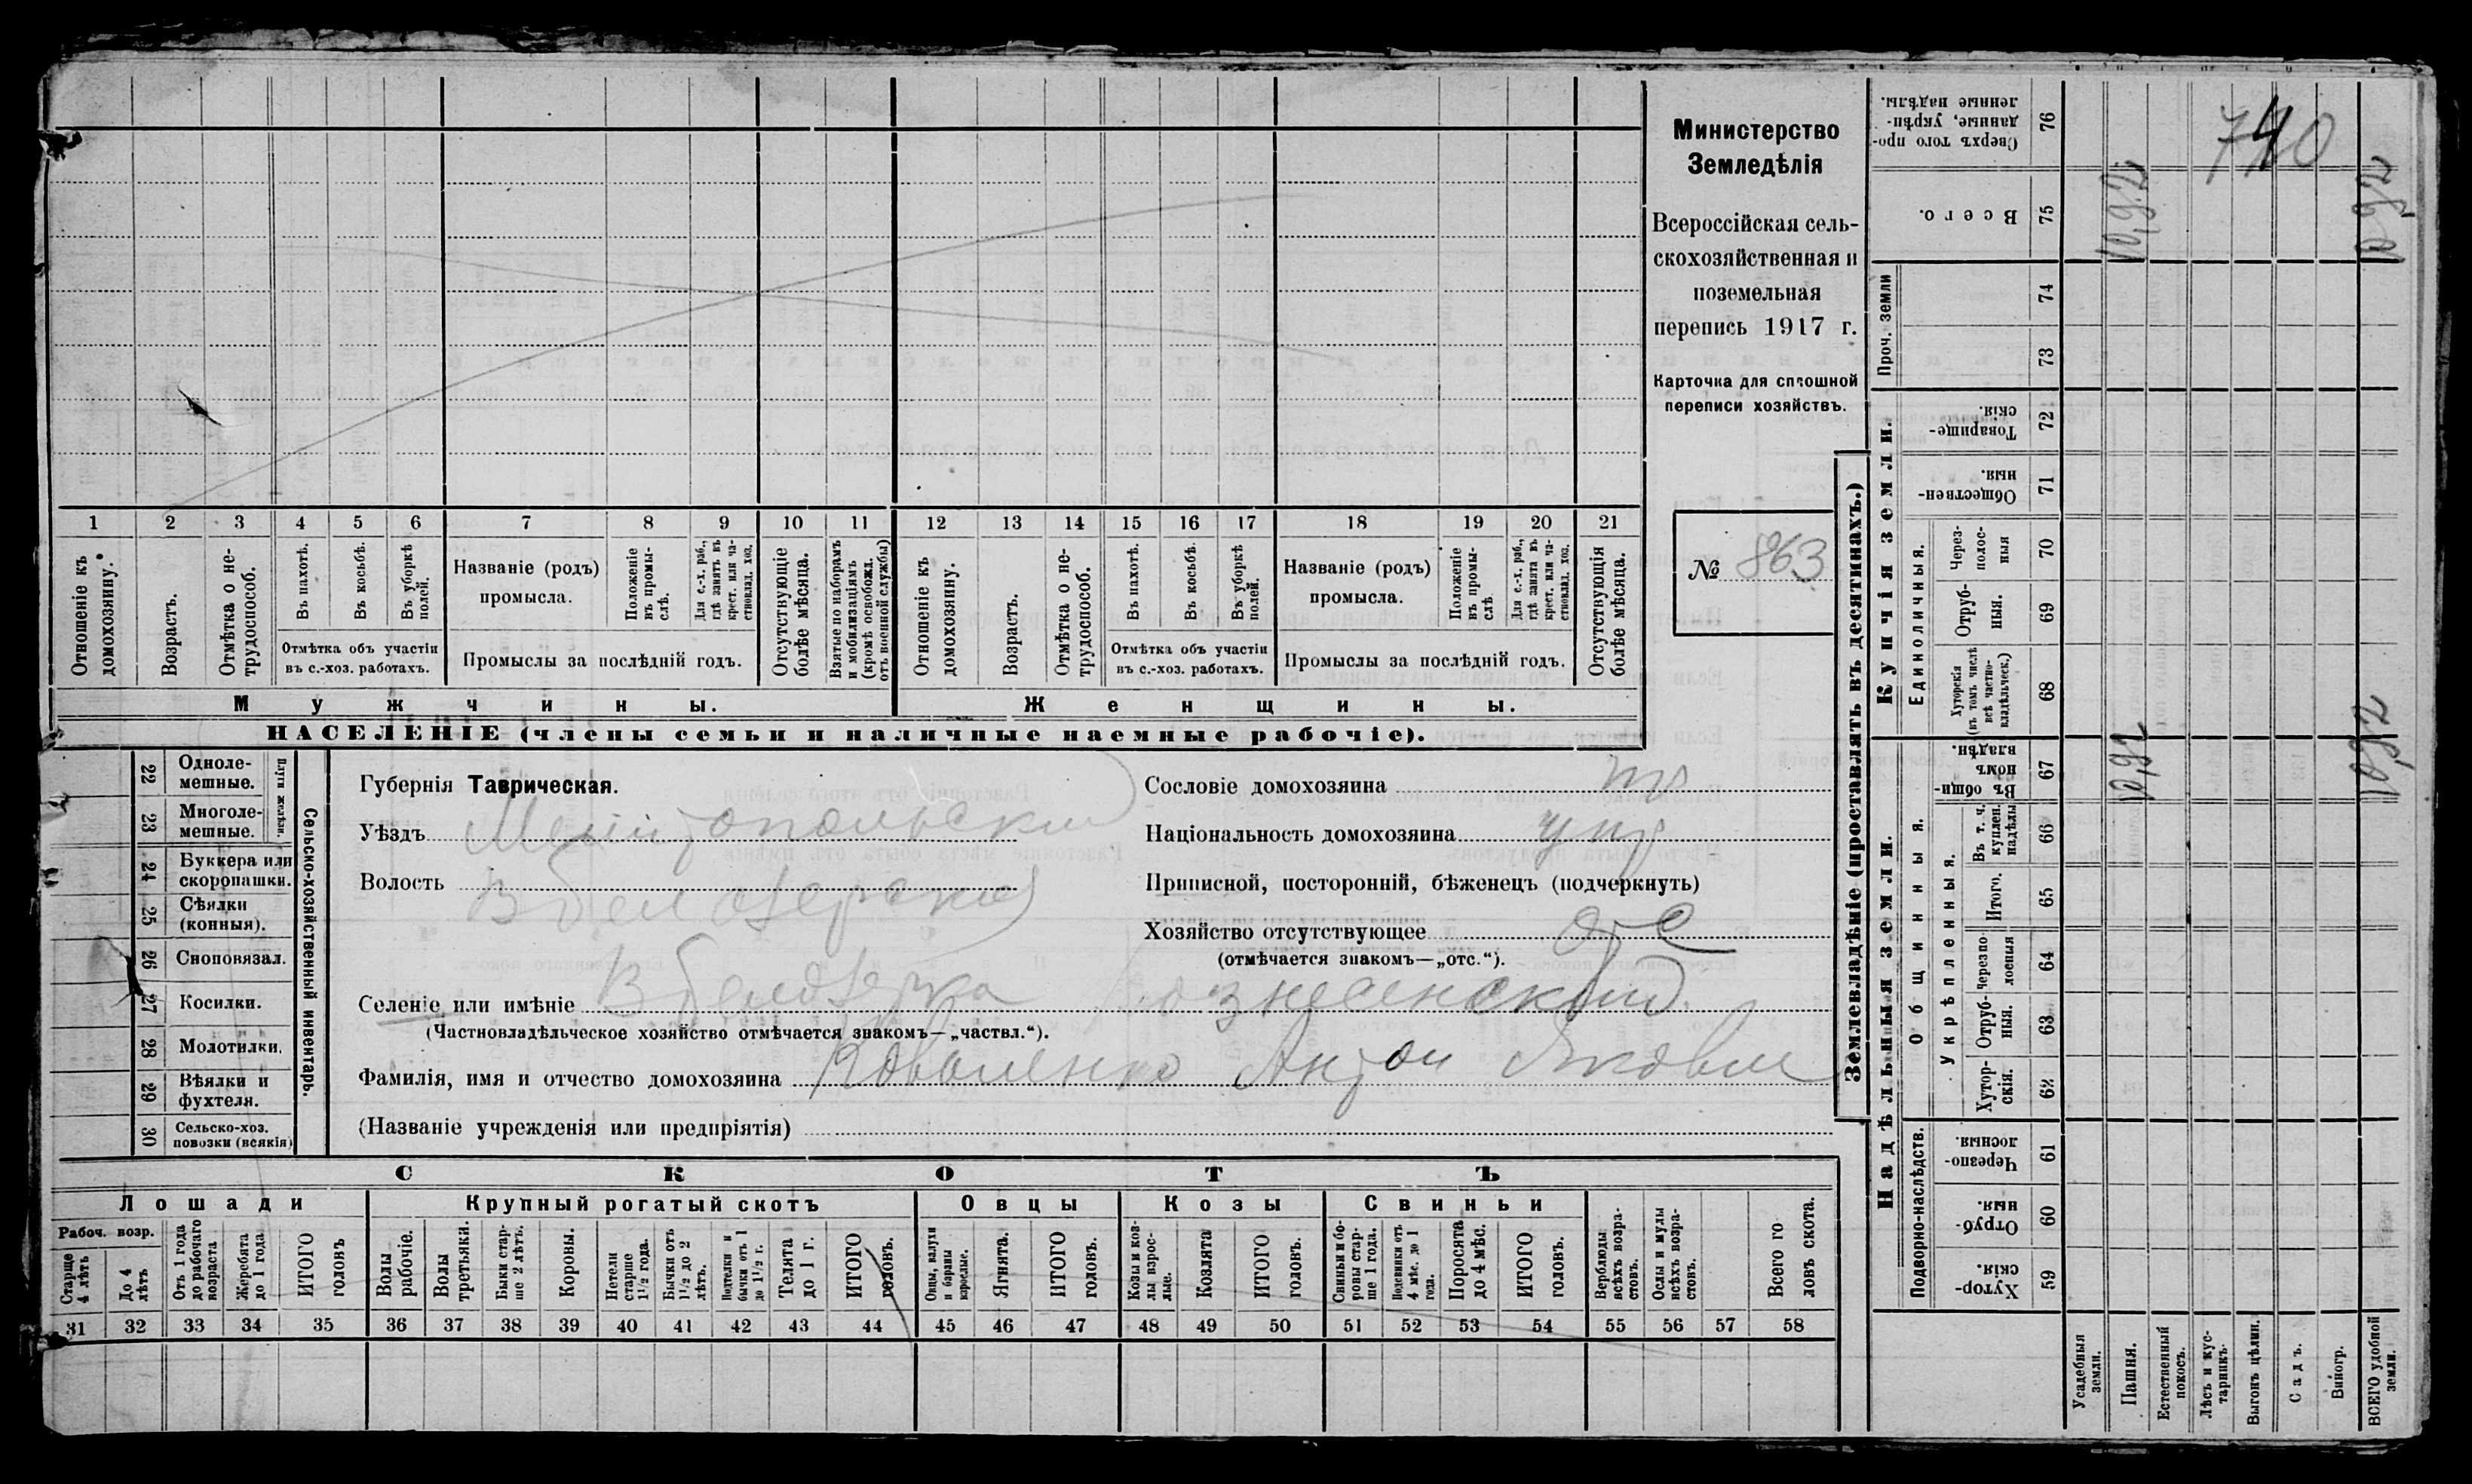 Министерство
Земледѣлія
Всероссійская сель-
скохозяйственная и
поземельная
перепись 1917 г.
Карточка для сплошной
переписи хозяйствъ.
№ 863
740
1 2 3 4 5 6 7 8 9 10 11 12 13 14 15 16 17 18 19 20 21
Отношеніе къ домохозяину.
Возрастъ.
Отмѣтка о не-трудоспособ.
Въ пахотѣ.
Въ косьбѣ.
Въ уборкѣ полей.
Отмѣтка объ участіи
въ с.-хоз. работахъ.
Названіе (родъ)
промысла.
Положеніе въ промы-слѣ.
Для с.-х. раб., гдѣ занятъ въ крест. или ча-стновлад. хоз.
Промыслы за послѣдній годъ.
Отсутствующіе болѣе мѣсяца.
Взятые по наборамъ и мобилизаціямъ (кромѣ освобожд. отъ военной службы)
Отношеніе къ домохозяину.
Возрастъ.
Отмѣтка о не-трудоспособ.
Въ пахотѣ.
Въ косьбѣ.
Въ уборкѣ полей.
Отмѣтка объ участіи
въ с.-хоз. работахъ.
Названіе (родъ)
промысла.
Положеніе въ промы-слѣ
Для с.-х. раб., гдѣ занята въ крест. или ча-стновлад. хоз.
Промыслы за послѣдній годъ.
Отсутствующія болѣе мѣсяца.
Мужчины. Женщины.
НАСЕЛЕНІЕ (члены семьи и наличные наемные рабочіе).
Сельско-хозяйственный инвентарь.
Плуги желѣзн.
22 Одноле-мешные.
23 Многоле-мешные.
24 Буккера или скоропашки.
25 Сѣялки (конныя).
26 Сноповязал.
27 Косилки.
28 Молотилки.
29 Вѣялки и фухтеля.
30 Сельско-хоз. повозки (всякія)
Губернія Таврическая.
Уѣздъ Мелитопольскій
Волость В Белозерской
Сословіе домохозяина
Національность домохозяина укр
Приписной, посторонній, бѣженецъ (подчеркнуть)
Хозяйство отсутствующее отс
(отмѣчается знакомъ—„отс.“).
Селеніе или имѣніе В Белозерка Вознесенской
(Частновладѣльческое хозяйство отмѣчается знакомъ—„частвл.“).
Фамилія, имя и отчество домохозяина Коваленко Антон Яковл
(Названіе учрежденія или предпріятія)
СКОТЪ
Лошади Крупный рогатый скотъ Овцы Козы Свиньи
Рабоч. возр.
Старше 4 лѣтъ
До 4 лѣтъ
Отъ 1 года до рабочаго возраста
Жеребята до 1 года.
ИТОГО головъ
Волы рабочіе.
Волы третьяки.
Быки стар-ше 2 лѣтъ.
Коровы.
Нетели старше 1½ года.
Бычки отъ 1½ до 2 лѣтъ.
Подтелки и бычки отъ 1 до 1½ г.
Телята до 1 г.
ИТОГО головъ.
Овцы, валухи и бараны взрослые.
Ягнята.
ИТОГО головъ.
Козы и коз-лы взрос-лые.
Козлята
ИТОГО головъ.
Свиньи и бо-ровы стар-ше 1 года.
Подсвинки отъ 4 мѣс. до 1 года.
Поросята до 4 мѣс.
ИТОГО головъ.
Верблюды всѣхъ возра-стовъ.
Ослы и мулы всѣхъ возра-стовъ.
Всего го-ловъ скота.
31 32 33 34 35 36 37 38 39 40 41 42 43 44 45 46 47 48 49 50 51 52 53 54 55 56 57 58
Землевладѣніе (проставлять въ десятинахъ.)
Сверхъ того про-данные, укрѣп-ленные надѣлы. 76
Всего. 75 10,92 10,92
Проч. земли 74
73
Купчія земли.
Товарище-скія. 72
Обществен-ныя. 71
Единоличныя.
Через-полос-ныя 70
Отруб-ныя. 69
Хуторскія (въ томъ числѣ всѣ частно-владѣльческ.) 68
Надѣльныя земли.
Общинныя.
Въ общи-номъ владѣн. 67 10,92 10,92
Укрѣпленныя.
Въ т. ч. куплен. надѣлы 66
Итого. 65
Черезпо-лосныя 64
Отруб-ныя. 63
Хутор-скія. 62
Подворно-наслѣдств.
Черезпо-лосныя. 61
Отруб-ныя. 60
Хутор-скія. 59
Усадебныя земли.
Пашня.
Естественный покосъ.
Лѣсъ и ку-старникъ.
Выгонъ цѣлин.
Садъ.
Виногр.
ВСЕГО удобной земли.